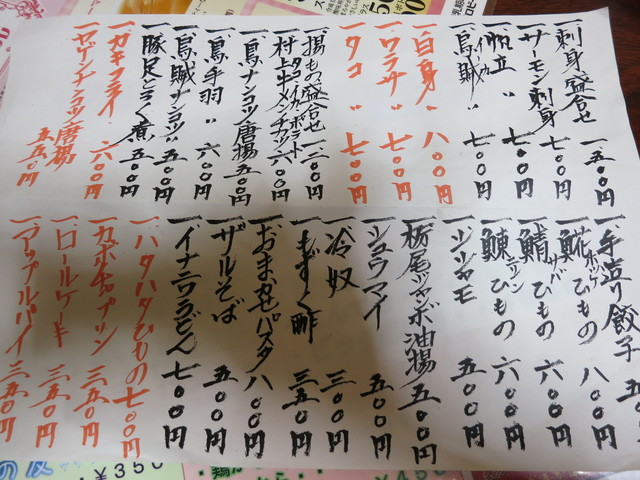 一、刺身盛合せ 一、五〇〇円
一、サーモン刺身 七〇〇円
一、帆立 〃 七〇〇円
一、烏賊 イーカ 〃 七〇〇円
一、白身 〃 八〇〇円
一、ワラサ 〃 七〇〇円
一、タコ 〃 七〇〇円
一、揚もの盛合せ タコ・イカ・ポテト 一、二〇〇円
一、村上牛メンチカツ 六〇〇円
一、鳥ナンコツ唐揚 五〇〇円
一、鳥手羽 〃 六〇〇円
一、烏賊ナンコツ 〃 五〇〇円
一、豚足とろ煮 五〇〇円
一、カキフライ 六〇〇円
一、ヤゲンナンコツ唐揚 五五〇円
一、手造り餃子 五〇
一、𩸽 ホッケ ひもの 八〇〇円
一、鯖 サバ ひもの 六〇〇円
一、鰊 ニシン ひもの 六〇〇円
一、シシャモ 五〇〇円
一、栃尾ジャンボ油揚 五〇〇円
一、シュウマイ 五〇〇円
一、冷奴 三〇〇円
一、もずく酢 三五〇円
一、おまかせパスタ 八〇〇円
一、ザルそば 五〇〇円
一、イナニワうどん 七〇〇円
一、ハタハタひもの 七〇〇円
一、カボチャプリン 三五〇円
一、ロールケーキ 三五〇円
一、アップルパイ 三五〇円
￥350
￥450